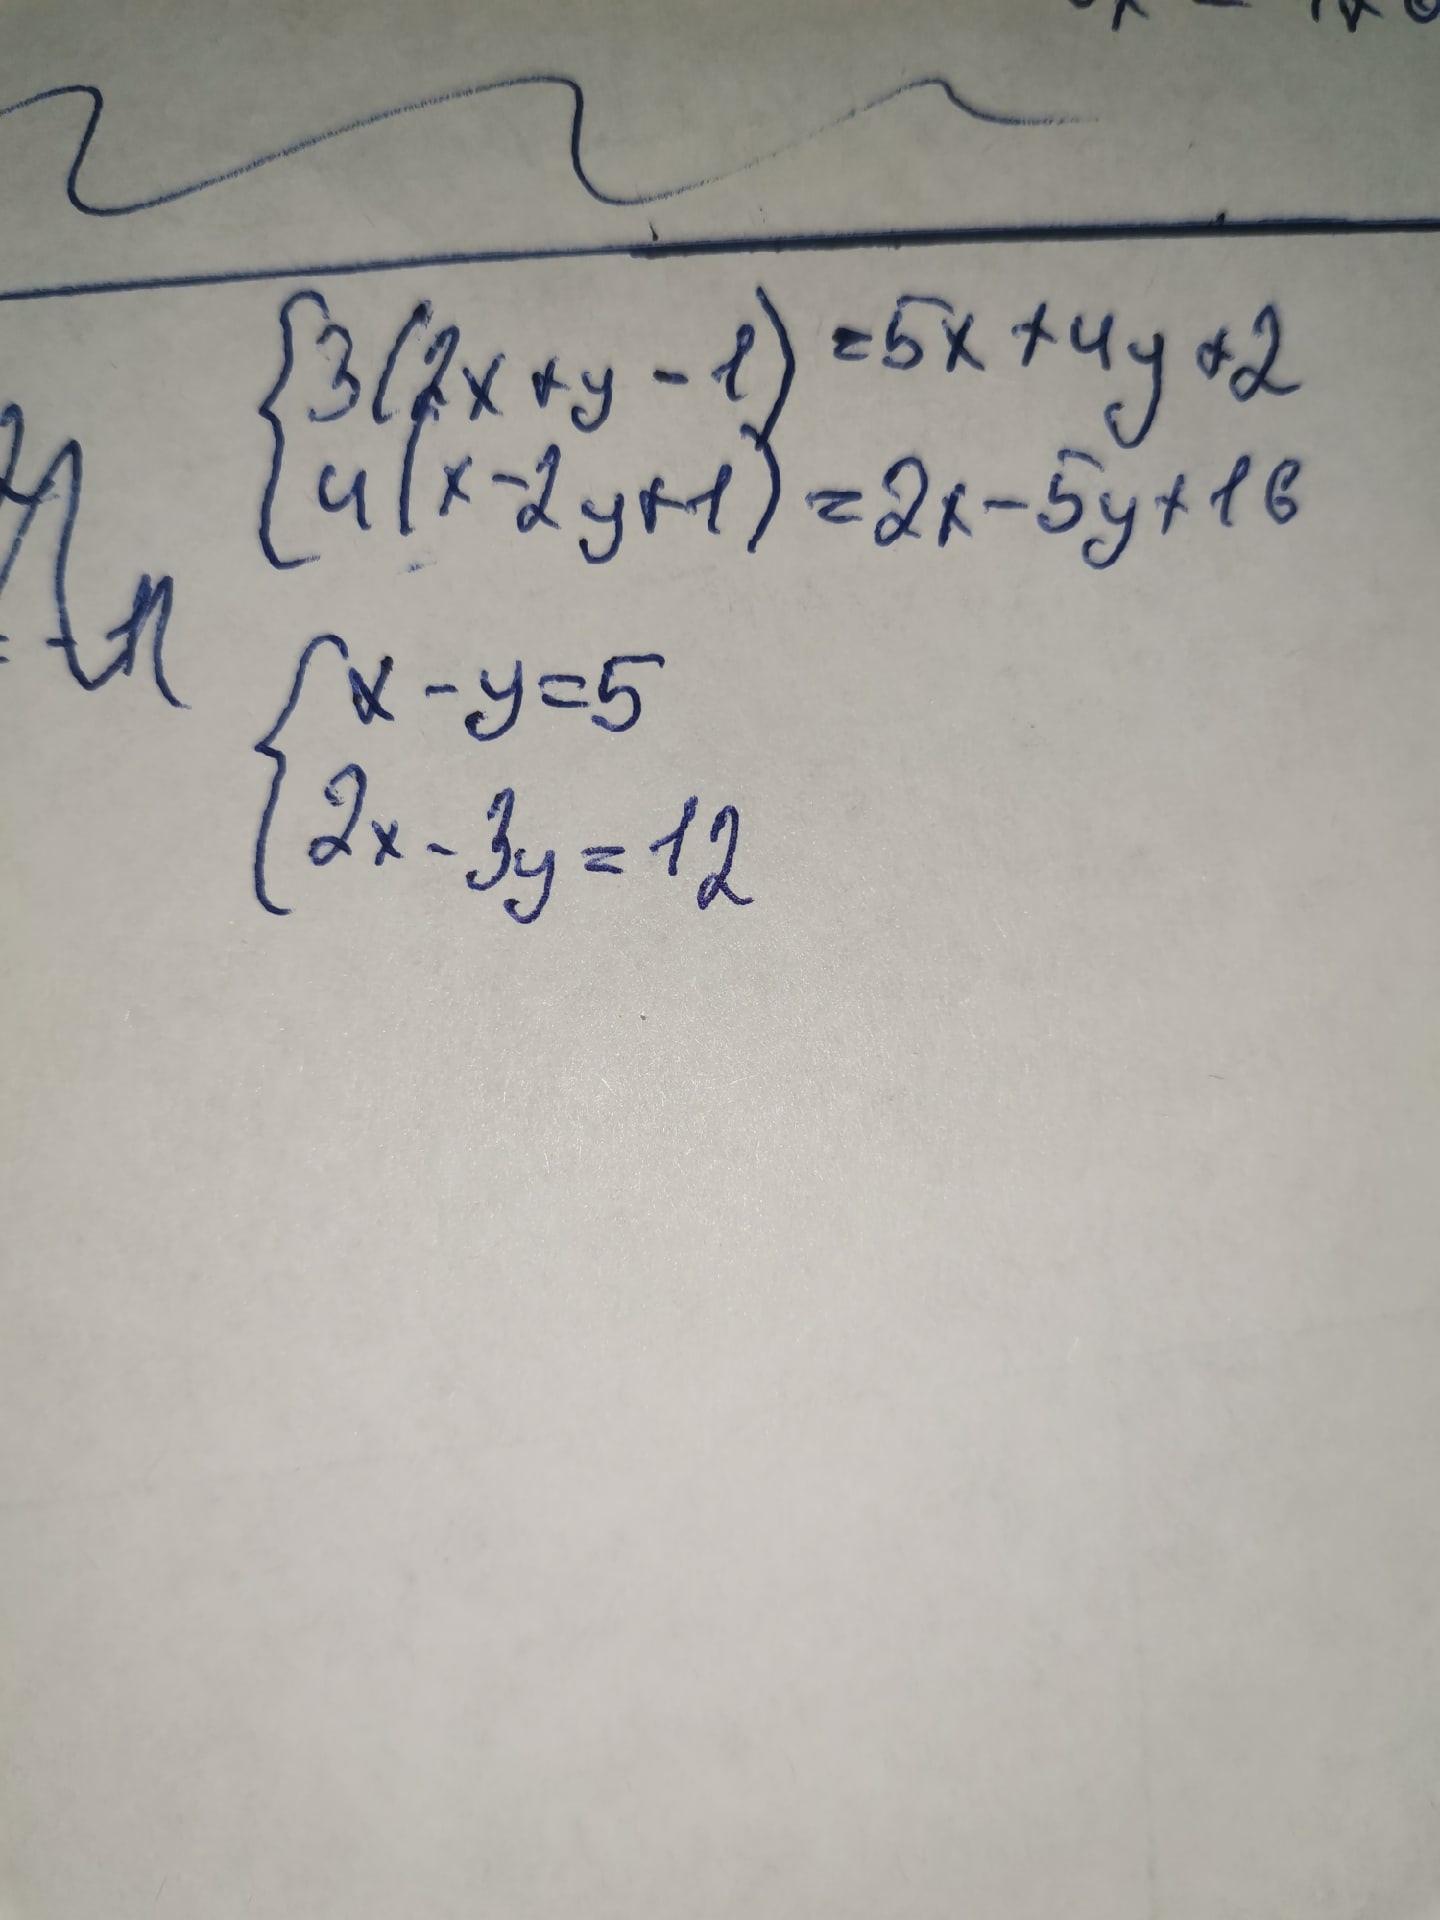 3(2x+y-1)=5x+4y+2
4(x-2y+1)=2x-5y+16
x-y=5
2x-3y=12